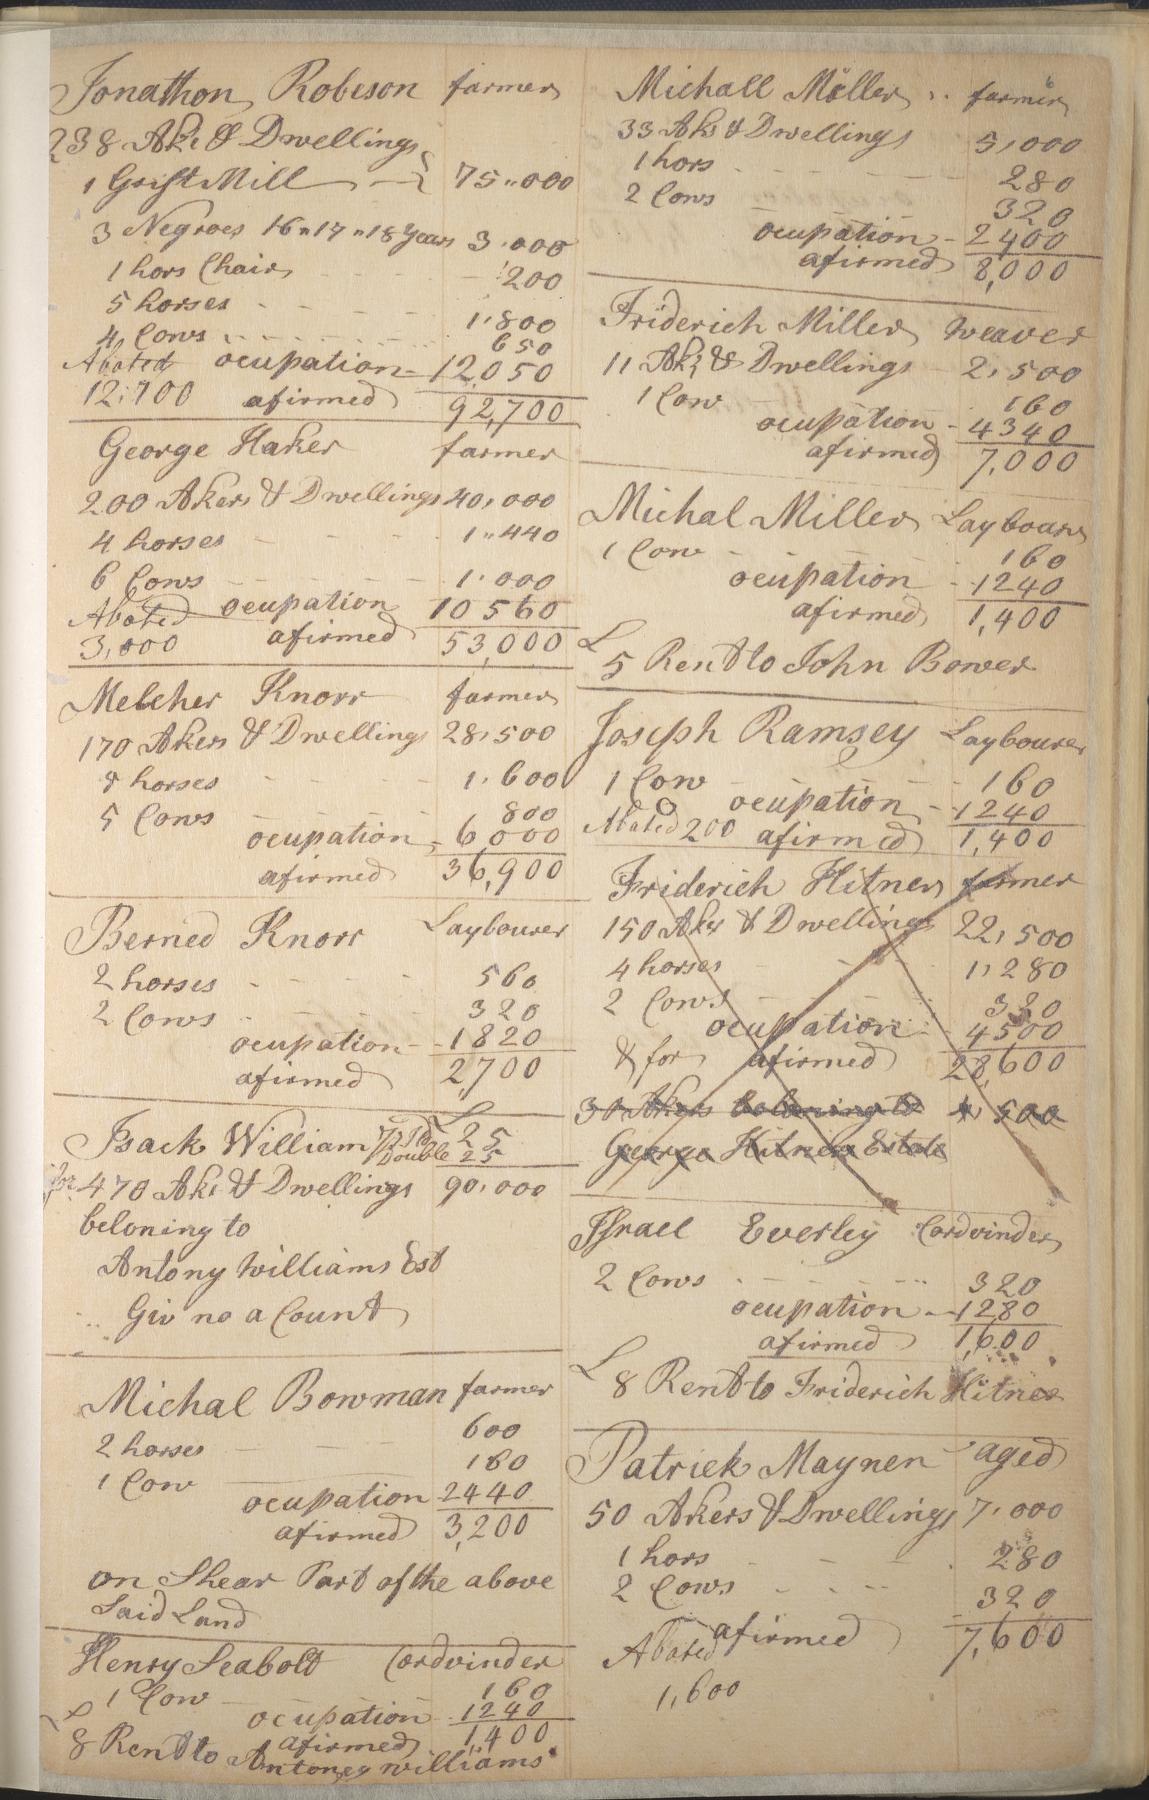 Jonathon Robeson farmer
238 Aks & Dwellings
1 Grist Mill 75,,000
3 Negroes 16,,17,,18 years 3,000
1 hors Chair 200
5 horses 1,800
4 Cows 650
Abated ocupation 12,050
12,700 afirmed 92,700
George Haker farmer
200 Akers & Dwellings 40,000
4 horses 1,,440
6 Cows 1,000
Abated ocupation 10560
3,000 afirmed 53,000
Melcher Knorr farmer
170 Akers & Dwellings 28,500
horses 1,600
5 Cows 800
ocupation 6,000
afirmed 36,900
Berned Knorr Laybourer
2 horses 560
2 Cows 320
ocupation 1820
afirmed 2,700
Isack William £ 25
Double 25
for 470 Aks & Dwellings 90,000
beloning to
Antony Williams Est
Giv no a Count
Michal Bowman farmer
2 horses 600
1 Cow 160
ocupation 2440
afirmed 3,200
on Shear Part of the above
Said Land
Henry Seabolt Cordvinder
1 Cow 160
ocupation 1240
afirmed 1400
£
8 Rent to Antoney williams
Michall Miller farmer
33 Aks & Dwellings 5,000
1 hors 280
2 Cows 320
ocupation 2400
afirmed 8,000
Friderich Miller weaver
11 Aks & Dwellings 2,500
1 Cow 160
ocupation 4340
afirmed 7,000
Michal Miller Laybourer
1 Cow 160
ocupation 1240
afirmed 1,400
£
5 Rent to John Bower
Joseph Ramsey Laybourer
1 Cow 160
ocupation 1240
Abated 200 afirmed 1,400
Friderich Hitner farmer
150 Aks & Dwellings 22,500
4 horses 1,280
2 Cows 320
ocupation 4500
& for afirmed 28,600
30 Akers beloning to 4,500
George Hitners Estate
Israel Everley Cordvinder
2 Cows 320
ocupation 1280
afirmed 1,600
£
8 Rent to Friderich Hitner
Patrick Maynen aged
50 Akers & Dwellings 7,000
1 hors 280
2 Cows 320
Abated afirmed 7,600
1,600